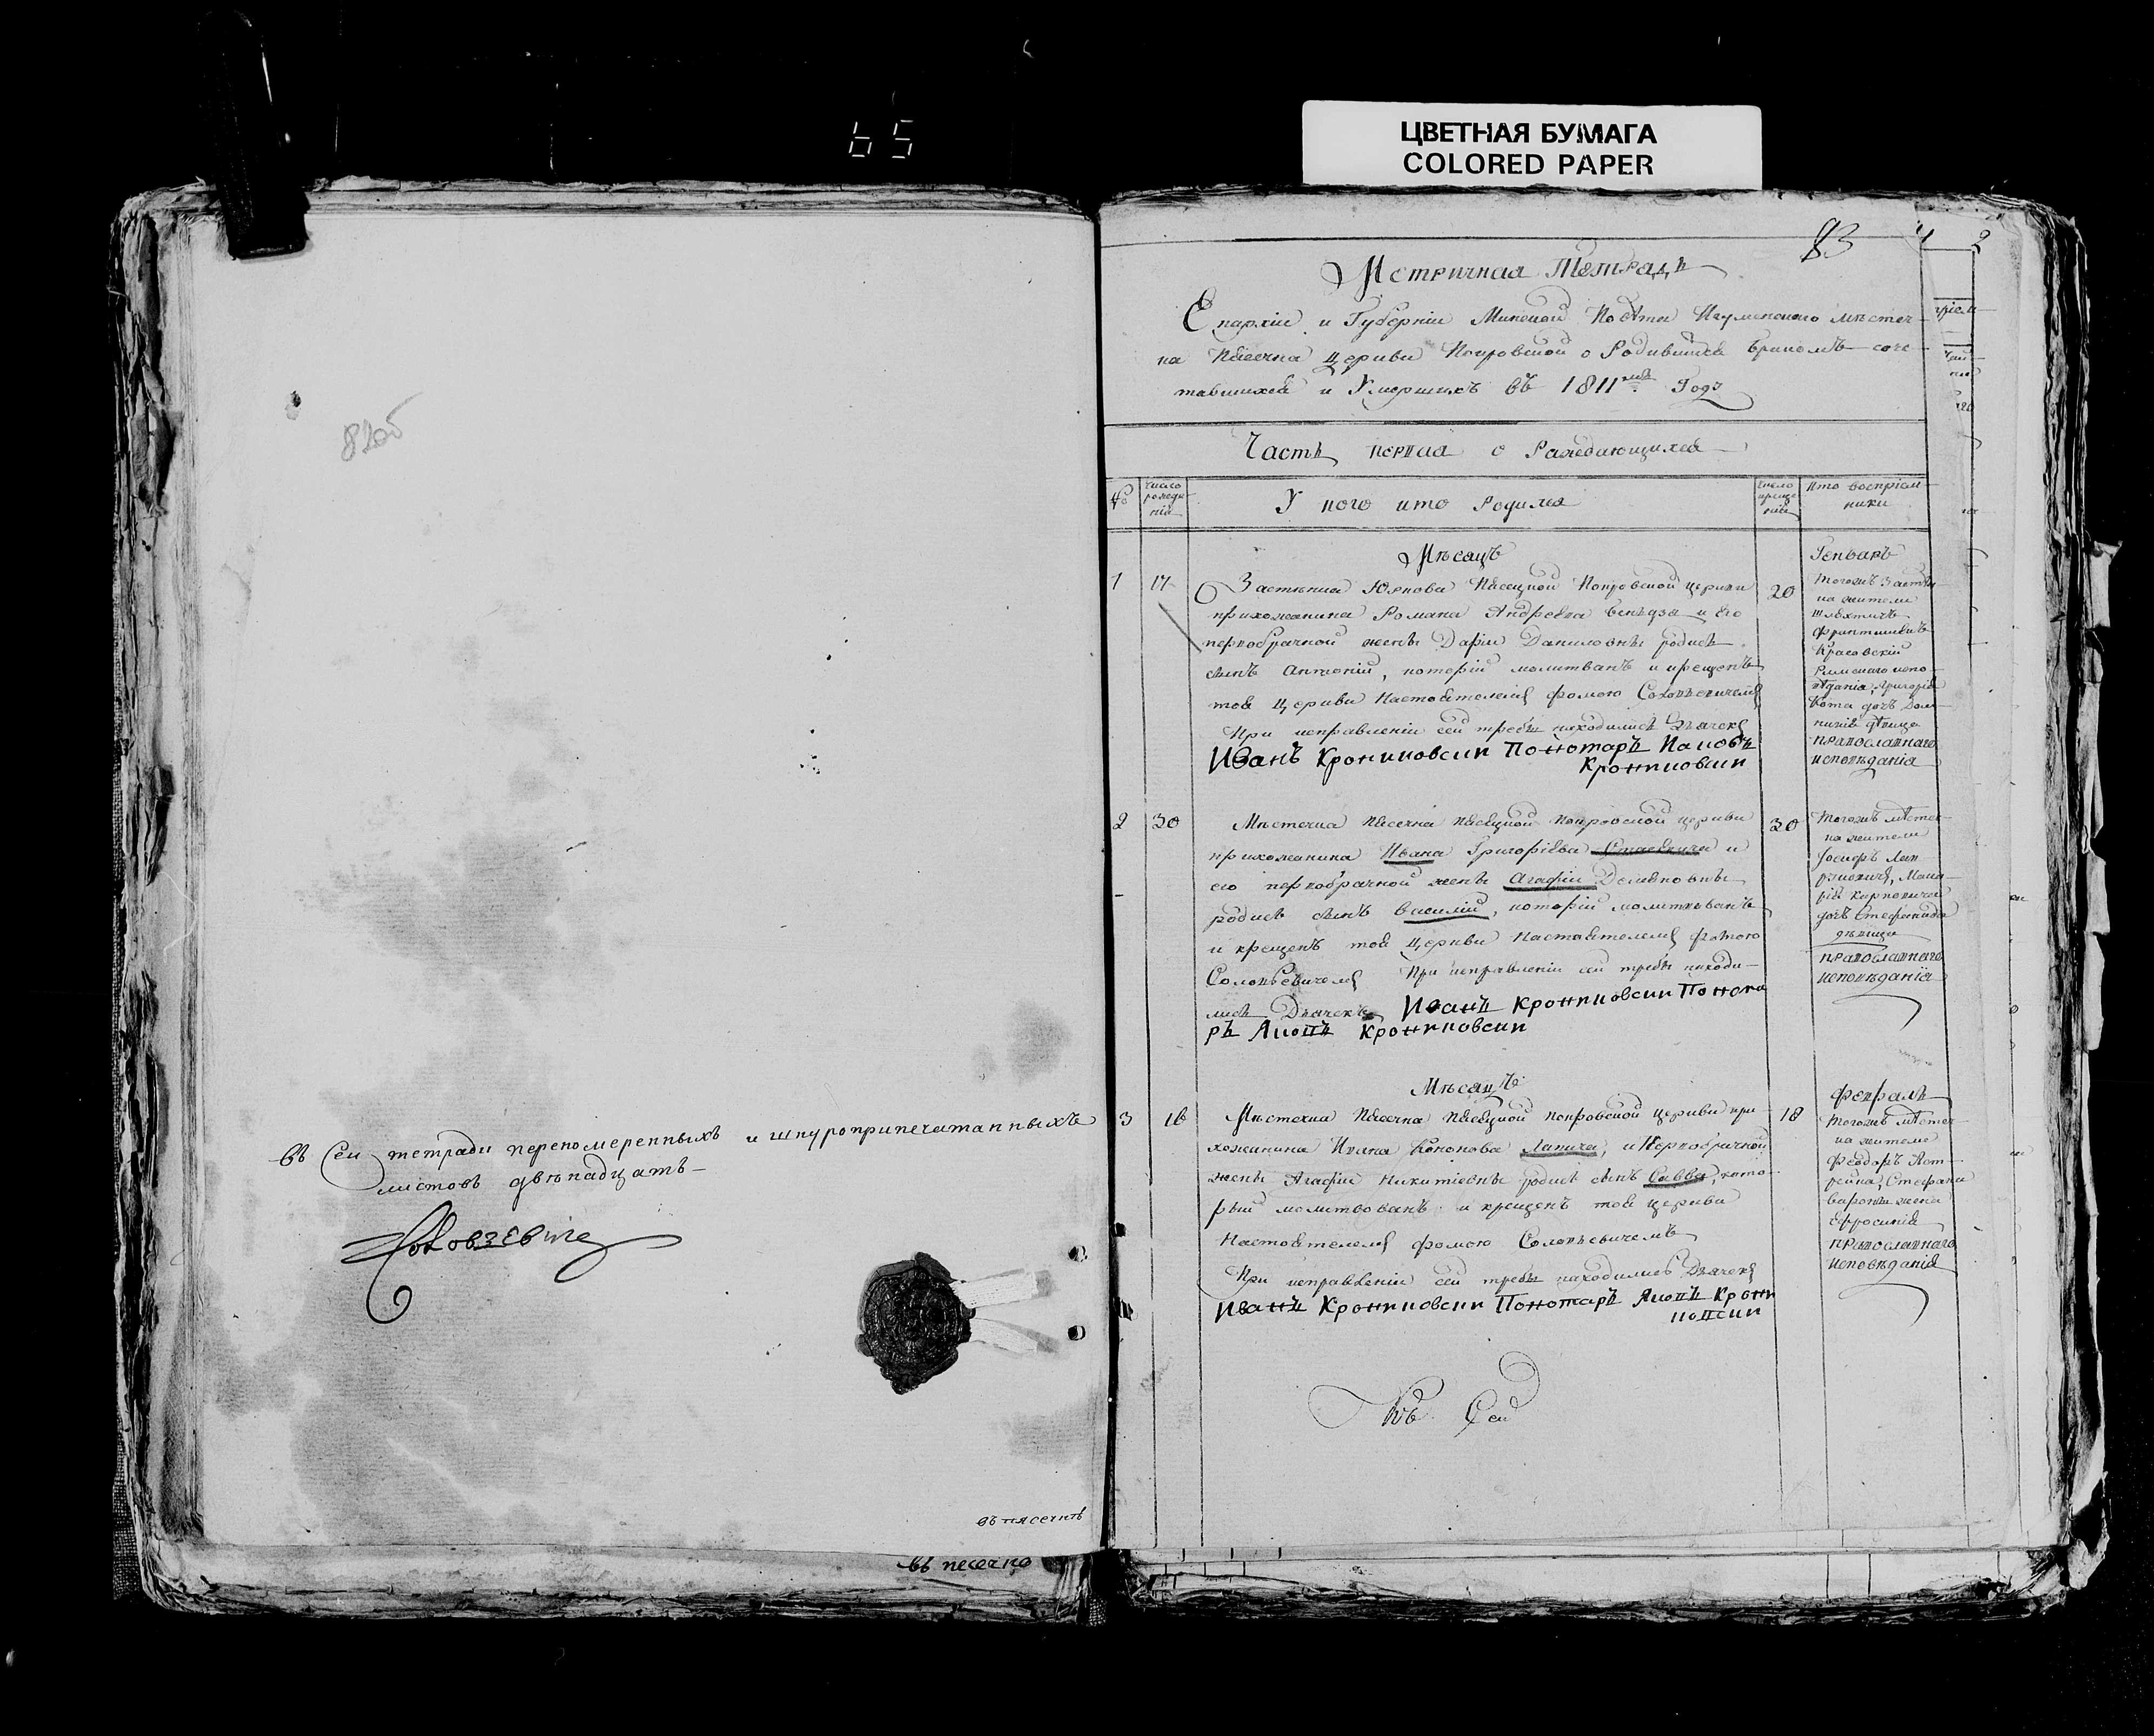 65
ЦВЕТНАЯ БУМАГА
COLORED PAPER
82об
въ сей тетради перенумеренныхъ и шнуроприпечатанныхъ
листовъ двѣнадцать
въ пясечнѣ
въ песечно
83
2
Метричная Тетрадь
Епархіи и Губерніи Минской Повѣта Игуменскаго мѣстеч-
ка Пясечна Церкви Покровской о Родившихся бракомъ соче
тавшихся и Умершихъ въ 1811мъ Году
Часть первая о Рождающихся
№
число рожде нія
У кого кто Родился
число креще нія
Кто воспріем-
ники
Мѣсяцъ
Генварь
1
17
Застѣнка Пясецкой Покровской церкви
прихожанина Романа Андреева и его
первобрачной жены Даріи Даниловны родися
сынъ Антоній, которій молитванъ и крещенъ
той Церкви Настоятелемъ Фомою
При исправленіи сей требы находилися Дьячекъ
Иванъ Крониковски Пономаръ
Крониковски
20
Тогожъ Застѣн
ка жители
шляхтичъ
Францишекъ
Красовскій
Римскаго испо-
вѣданія, Григорія
Кота дочъ
дѣвица
православнаго
исповѣданія
2
30
Мѣстечка Пясечна Пясецкой Покровской церкви
прихожанина Ивана Григоріева и
его первобрачной жены Агафіи
родися сынъ Василій, которій молитвованъ
и крещенъ той Церкви Настоятелемъ Фомою
При исправленіи сей требы находи-
лися Дьячекъ Иванъ Крониковски Понома
ръ Яковъ Крониковски
30
Тогожъ мѣстеч-
ка жители
Іосифъ
дочъ Стефанида
дѣвица
православнаго
исповѣданія
Мѣсяцъ
Февраль
3
16
Мѣстечка Пясечна Пясецкой Покровской церкви при
хожанина Ивана Кононова и Первобрачной
жены Агафіи Никитіевны родися сынъ Савва, кото-
рый молитвованъ и крещенъ той церкви
Настоятелемъ Фомою
При исправленіи сей требы находилися Дьячекъ
Иванъ Крониковски Пономаръ Яковъ Крони
ковски
18
Тогожъ мѣстеч
ка жители
Феодоръ
Стефана
жена
Ефросинія
православнаго
исповѣданія